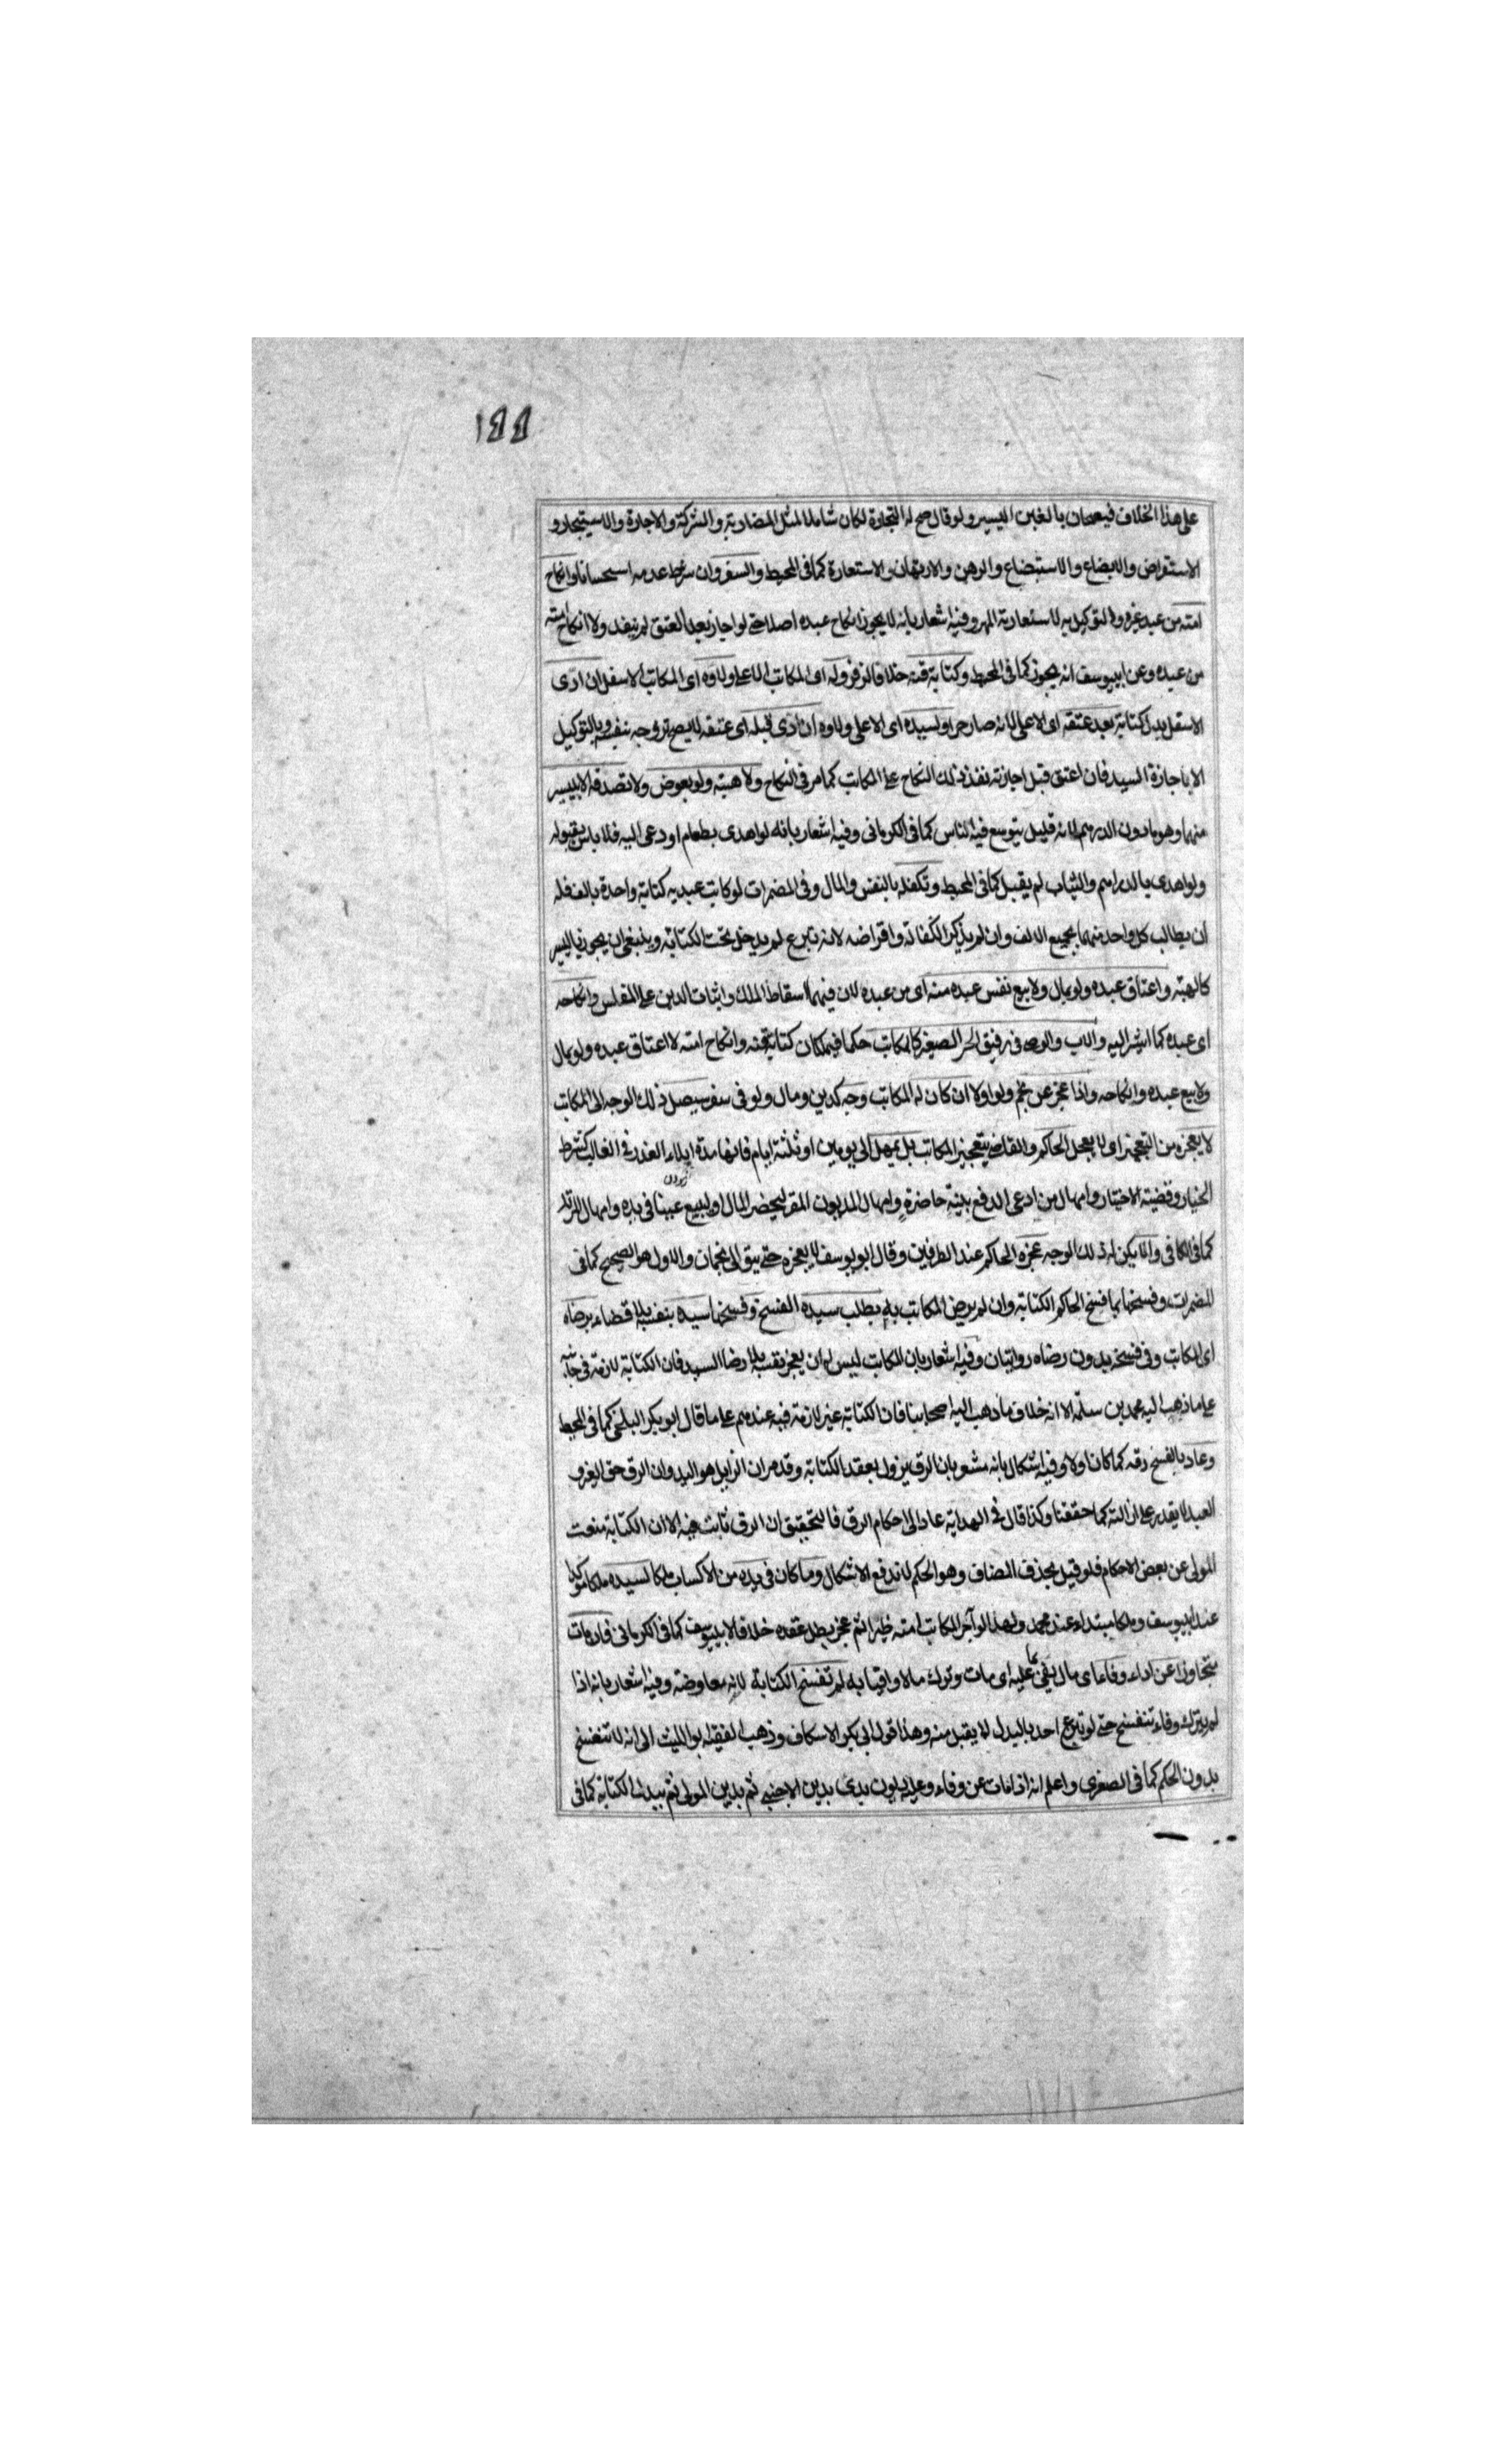 ١٤٤
على هذا الخلاف فيعممان بالغبن اليسير ولو قال صح له التجارة لكان شاملا لمثل المضاربة والشركة والاجارة والاستيجار و
الاستقراض والابضاع والاستبضاع والرهن والارتهان والاستعارة كما في المحيط والسفر وان شرط عدمه استحسانا وانكاح
امته من عبد غيره والتوكيل به لاستعارية المهر وفيه اشعار بانه لا يجوز انكاح عبده اصلا حتى لو اجاز بعد العتق لم ينفذ ولا انكاح امته
من عبده وعن ابي يوسف انه يجوز كما في المحيط وكتابة قنه خلافا لزفر وله اى المكاتب الاعلى ولاوه اى المكاتب الاسفل ان ادى
الاسفل بدل كتابته بعد عتقه اى الاعلى لانه صار حرا ولسيده اى الاعلى ولاوه ان ادى قبله اى عتقه لا يصح تزوجه نفسه وبالتوكيل
الا باجازة السيد فان اعتق قبل اجازته نفذ ذلك النكاح على المكاتب كما مر في النكاح ولا هبته ولو بعوض ولا تصدقه الا بيسير
منهما وهو ما دون الدرهم لانه قليل يتوسع فيه الناس كما في الكرماني وفيه اشعار بانه لو اهدى بطعام او دعى اليه فلا باس بقبوله
ولو اهدى بالدراهم والثياب لم يقبل كما في المحيط وتكفله بالنفس والمال وفي المضمرات لو كاتب عبديه كتابة واحدة بالف فله
ان يطالب كل واحد منهما بجميع الالف وان لم يذكر الكفالة واقراضه لانه تبرع لم يدخل تحت الكتابة وينبغي ان يجوز باليسير
كالهبة واعتاق عبده ولو بمال ولا بيع نفس عبده منه اى من عبده لان فيهما اسقاط الملك واثبات الدين على المفلس وانكاحه
اى عبده كما اشير اليه والاب والوصى في رقيق الحر الصغير كالمكاتب حكما فيملكان كتابة قنه وانكاح امته لا اعتاق عبده ولو بمال
ولا بيع عبده وانكاحه واذا عجز عن نجم ولو اولا ان كان له المكاتب وجه كدين ومال ولو في سفر سيصل ذلك الوجه الى المكاتب
لا يعجزه من التعجيز اى لا يعجل الحاكم والقاضي بتعجيز المكاتب بل يمهل الى يومين او ثلثة ايام فانها مدة ابلاء العذر في الغالب كشرط
الخيار وقضية الاختيار وامهال من ادعى الدفع ببينة حاضرة وامهال المديون المقر ليحضر المال او ليبيع عينا في يده وامهال المرتد
كما في الكافي والا يكن له ذلك الوجه عجزه الحاكم عند الطرفين وقال ابو يوسف لا يعجزه حتى يتوالى نجمان والاول هو الصحيح كما في
المضمرات وفسخها بما فسخ الحاكم الكتابة وان لم يرض المكاتب به بطلب سيده الفسخ وفسخها سيده بنفسه بلا قضاء برضاه
اى المكاتب وفي فسخه بدون رضاه روايتان وفيه اشعار بان المكاتب ليس له ان يعجز نفسه بلا رضا السيد فان الكتابة لازمة في جانبه
على ما ذهب اليه محمد بن سلمه الا انه خلاف ما ذهب اليه اصحابنا فان الكتابة غير لازمة فيه عندهم على ما قال ابو بكر البلخي كما في المحيط
وعاد بالفسخ رقه كما كان اولا وفيه اشكال بانه مشعر بان الرق يزول بعقد الكتابة وقد مر ان الزايل هو اليد وان الرق حق
العبد لا يقدر على ازالته كما حققنا وكذا قال في الهداية عاد الى احكام الرق فالتحقيق ان الرق ثابت فيه الا ان الكتابة منعت
المولى عن بعض الاحكام فلو قيل بحذف المضاف وهو الحكم لاندفع الاشكال وما كان في يده من الاكساب ملكا لسيده ملكا موكدا
عند ابي يوسف وملكا مبتداء عند محمد ولهذا لو آجر المكاتب امته ظئرا ثم عجز بطل عقده خلافا لابي يوسف كما في الكرماني فان مات
متجاوزا عن اداء وفاء اى مال يفى بما عليه اى مات وترك مالا وافيا به لم تفسخ الكتابة لانه معاوضة وفيه اشعار بانه اذا
لم يترك وفاء تنفسخ حتى لو تبرع احد بالبدل لا يقبل منه وهذا قول ابي بكر الاسكاف وذهب الفقيه ابو الليث الى انه لا تنفسخ
بدون الحكم كما في الصغرى واعلم انه اذا مات عن وفاء وعليه ديون بدى بدين الاجنبي ثم بدين المولى ثم ببدل الكتابة كما في